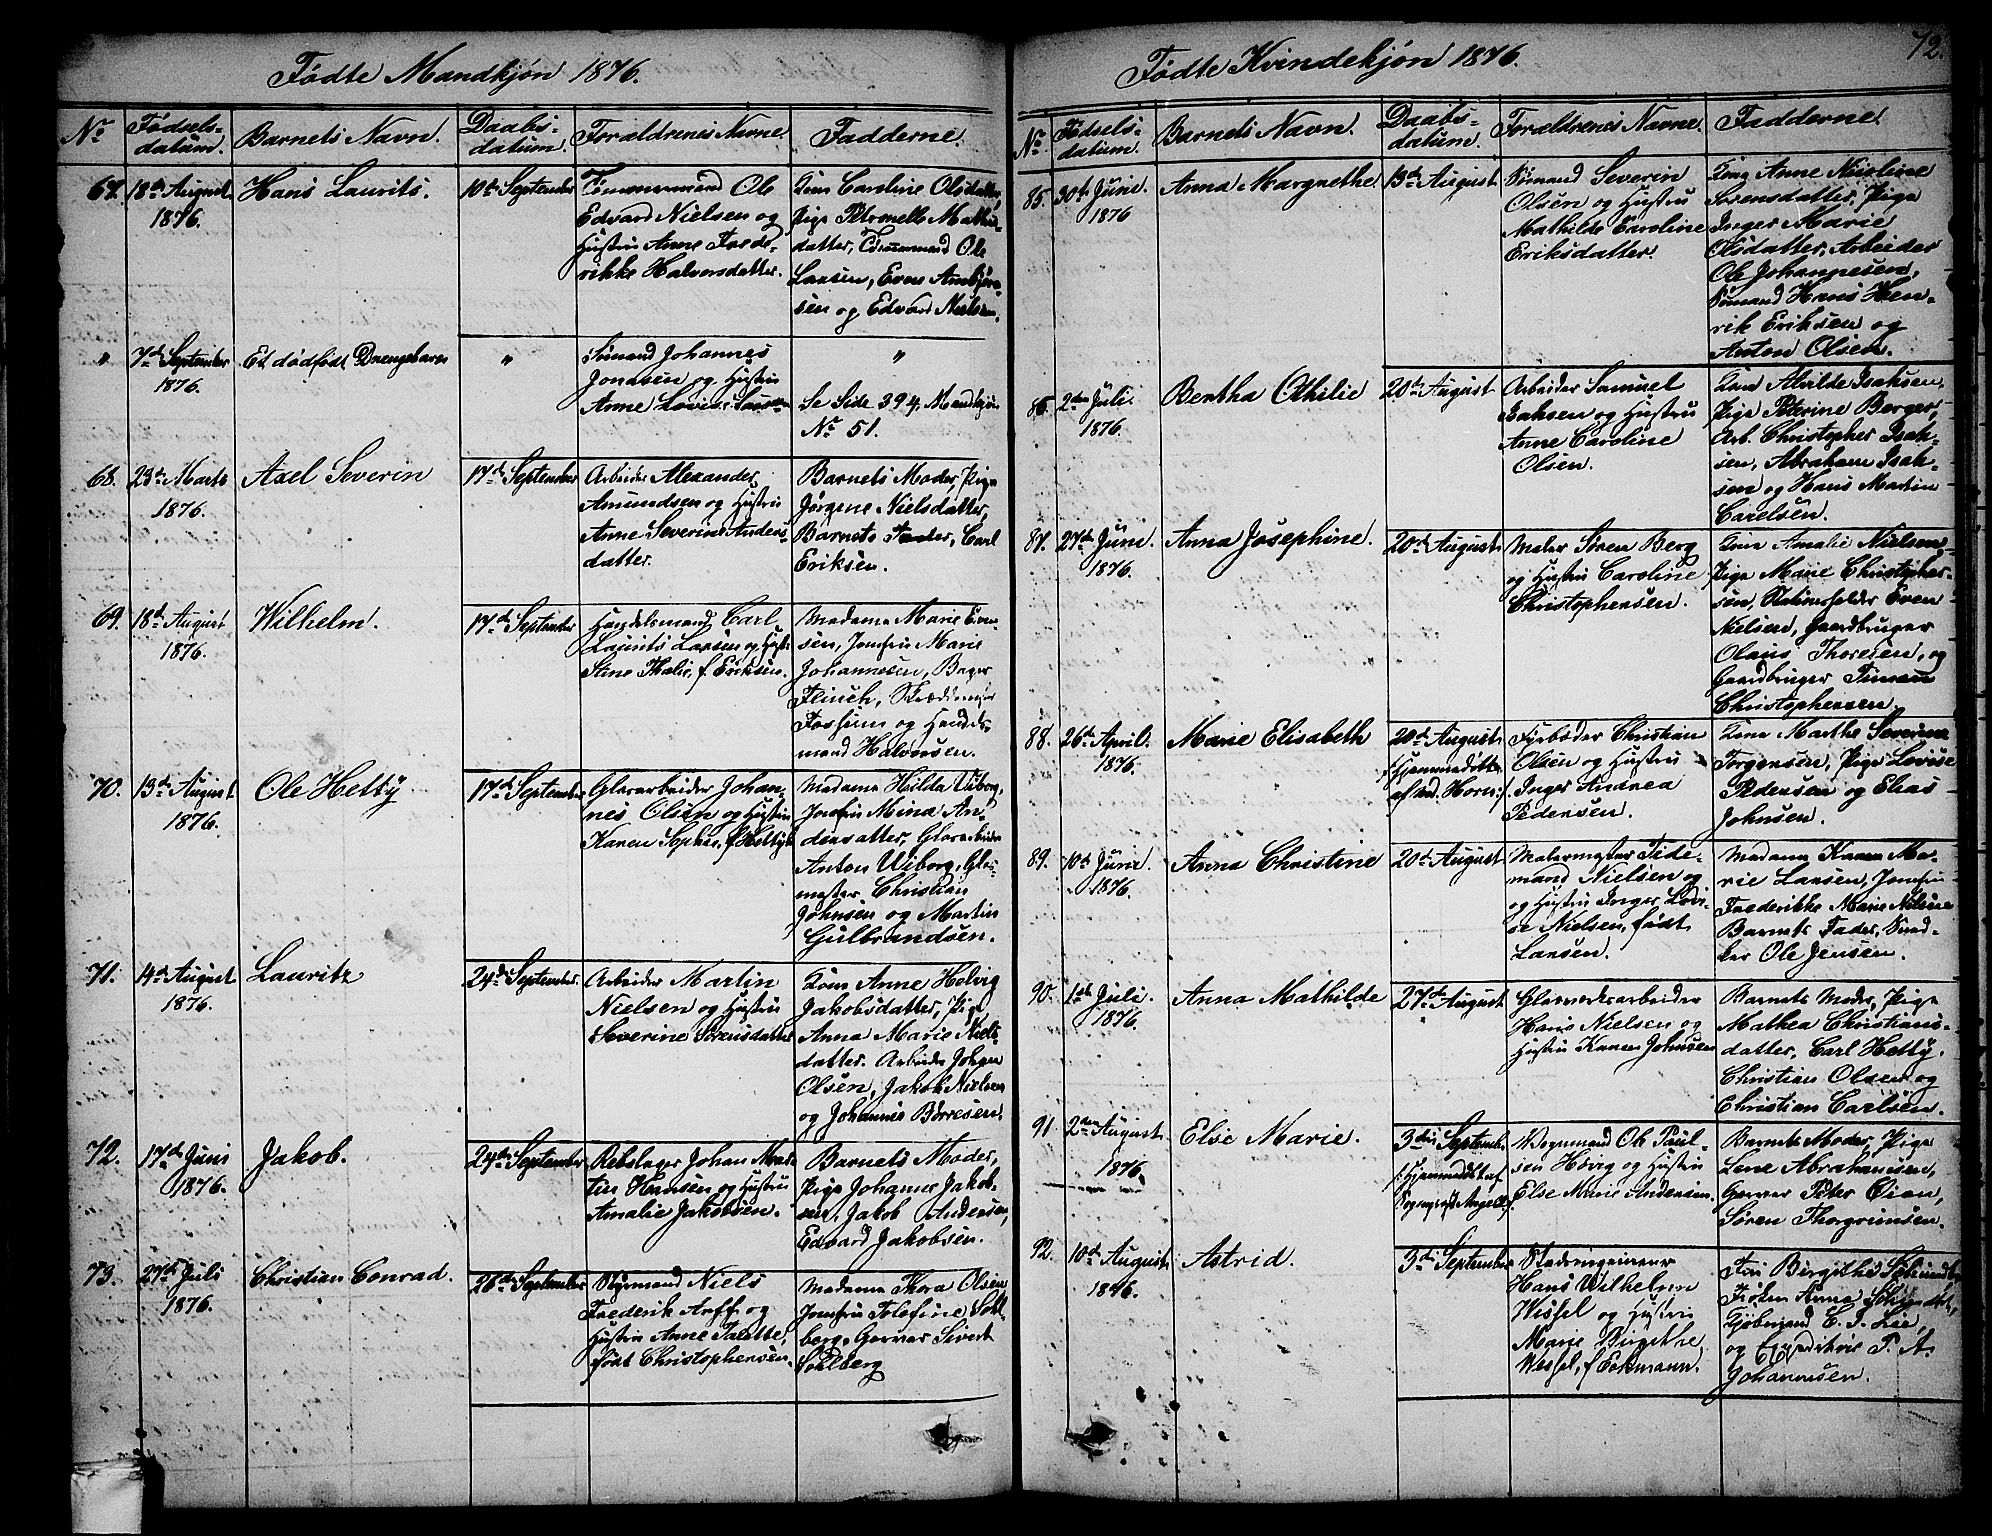 Fødte Mandkjøn 1876.
No
Fødsels-
datum.
Barnets Navn.
Daabs-
datum.
Forældrenes Navne
Fadderne.
67.
18de August
1876.
Hans Laurits.
10de September
Tømmermand Ole
Edvard Nielsen og
Hustru Anne Fred-
rikke Halvorsdatter.
Kone Caroline Olsdatter,
Pige Petronelle Mathis-
datter, Tømmermand Ole
Larsen, Even Ambjørn-
sen og Edvard Nielsen.
"
7de September
1876.
Et dødfødt Drengebarn
"
Sømand Johannes
Jonasen og Hustru
Anne Lovise
"
Se Side 394, Mandkjøn
No 51.
68.
23de Marts
1876.
Axel Severin
17de September
Arbeider Alexander
Amundsen og Hustru
Anne Severine Anders-
datter.
Barnets Moder, Pige
Jørgene Nielsdatter,
Barnets Fader, Carl
Eriksen.
69.
18de August
1876.
Wilhelm.
17de September
Handelsmand Carl
Laurits Larsen og Hustr.
Stine Thalie, f. Eriksen.
Madame Marie Even-
sen, Jomfru Marie
Johannesen, Bager
Flinch, Skræddermester
Fossum og Handels-
mand Halvorsen.
70.
13de August
1876.
Ole Hetty
17de September
Glasarbeider Johan-
nes Olsen og Hustru
Karen Sophie, f. Hettych
Madame Hilda Wiborg,
Jomfru Mina An-
dersdatter, Glasarbeider
Anton Wiborg, Glas-
mester Christian
Johnsen og Martin
Gulbrandsen.
71.
14de August
1876.
Lauritz
24de September.
Arbeider Martin
Nielsen og Hustru
Severine Sørensdatter
Kone Anne Helvig
Jakobsdatter, Pige
Anna Marie Niels-
datter. Arbeider Johan
Olsen, Jakob Nielsen
og Johannes Børresen.
72.
17de Juni
1876.
Jakob.
24de September
Rebslager Johan Mar-
tin Hansen og Hustru
Amalie Jakobsen.
Barnets Moder,
Pige Johanne Jakob-
sen, Jakob Andersen,
Edvard Jakobsen.
73.
27de Juli
1876.
Christian Conrad.
26de September
Styrmand Niels
Frederik Arff og
Hustru Anne Talette,
født Christophersen.
Madame Thora Olsen
Jomfru Tolefine Sohl-
berg, Garver Sivert
Sohlberg
72.
Fødte Kvindekjøn 1876.
No
Fødsels-
datum.
Barnets Navn.
Daabs-
datum.
Forældrenes Navne.
Fadderne.
85.
30te Juni
1876
Anna Margrethe
13de August
Sømand Severin
Olsen og Hustru
Mathilde Caroline
Eriksdatter.
Kone Anne Nicoline
Sørensdatter, Pige
Inger Marie
Olsdatter, Arbeider
Ole Johannesen,
Sømand Hans Hen-
rik Eriksen og
Anton Olsen.
86.
2den Juli.
1876.
Bertha Othilie
20de August
Arbeider Samuel
Isaksen og Hustru
Anne Caroline
Olsen.
Kone Alvilde Isaksen,
Pige Peterine Berger,
Arb. Christopher Isak-
sen, Abraham Isak-
sen og Hans Martin
Carelsen.
87.
27de Juni.
1876.
Anna Josephine.
20de August
Maler Søren Berg
og Hustru Caroline
Christophersen.
Kone Amalie Nielsen,
Pige Marie Christopher-
sen, Even
Nielsen, Gaardbruger
Olaus Thoresen, og
Gaardbruger Simen
Christophersen.
88.
26de April.
1876.
Marie Elisabeth
20de August
(:Hjemmedøbt
af And. Horn:)
Fyrbøder Christian
Olsen og Hustru
Inger Andrea
Pedersen.
Kone Marthe Severine
Torgersen, Pige Lovise
Pedersen og Elias
Johnsen.
89.
10de Juni
1876.
Anna Christine
20de August
Malermester Tide-
mand Nielsen og
og Hustru Inger Lovi-
se Nielsen, født
Larsen.
Madame Karen Ma-
rie Larsen, Jomfru
Frederikke Marie Nilsen
Barnets Fader, Sned-
ker Ole Jensen.
90.
1ste Juli.
1876.
Anna Mathilde
27de August
Glasværksarbeider
Hans Nielsen og
Hustru Karen Johnsen
Barnets Moder, Pige
Mathea Christians-
datter, Carl Hetty.
Christian Olsen og
Christian Carlsen.
91.
2den August.
1876.
Else Marie.
3die September
(:Hjemmedøbt af
Sogneprest Angell:)
Vognmand Ole Paul-
sen Høvig og Hustru
Else Marie Andersen.
Barnets Moder, Pige
Lene Abrahamsen,
Garver Peter Olsen,
Søren Thorgrimsen.
92.
10de August
1876.
Astrid.
3die September
Stadsingeniør
Hans Wilhelm
Wessel og Hustru
Marie Birgithe
Wessel, f. Eckmann.
Fru Birgithe Schmidt,
Frøken Anna Schmidt,
Kjøbmand C. J. Lee,
og Expeditør T. A.
Johannesen.